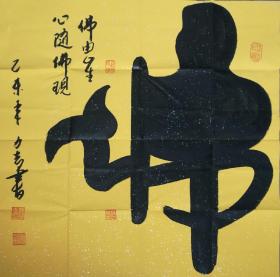 佛
佛由心生
心随佛現
乙未年
書